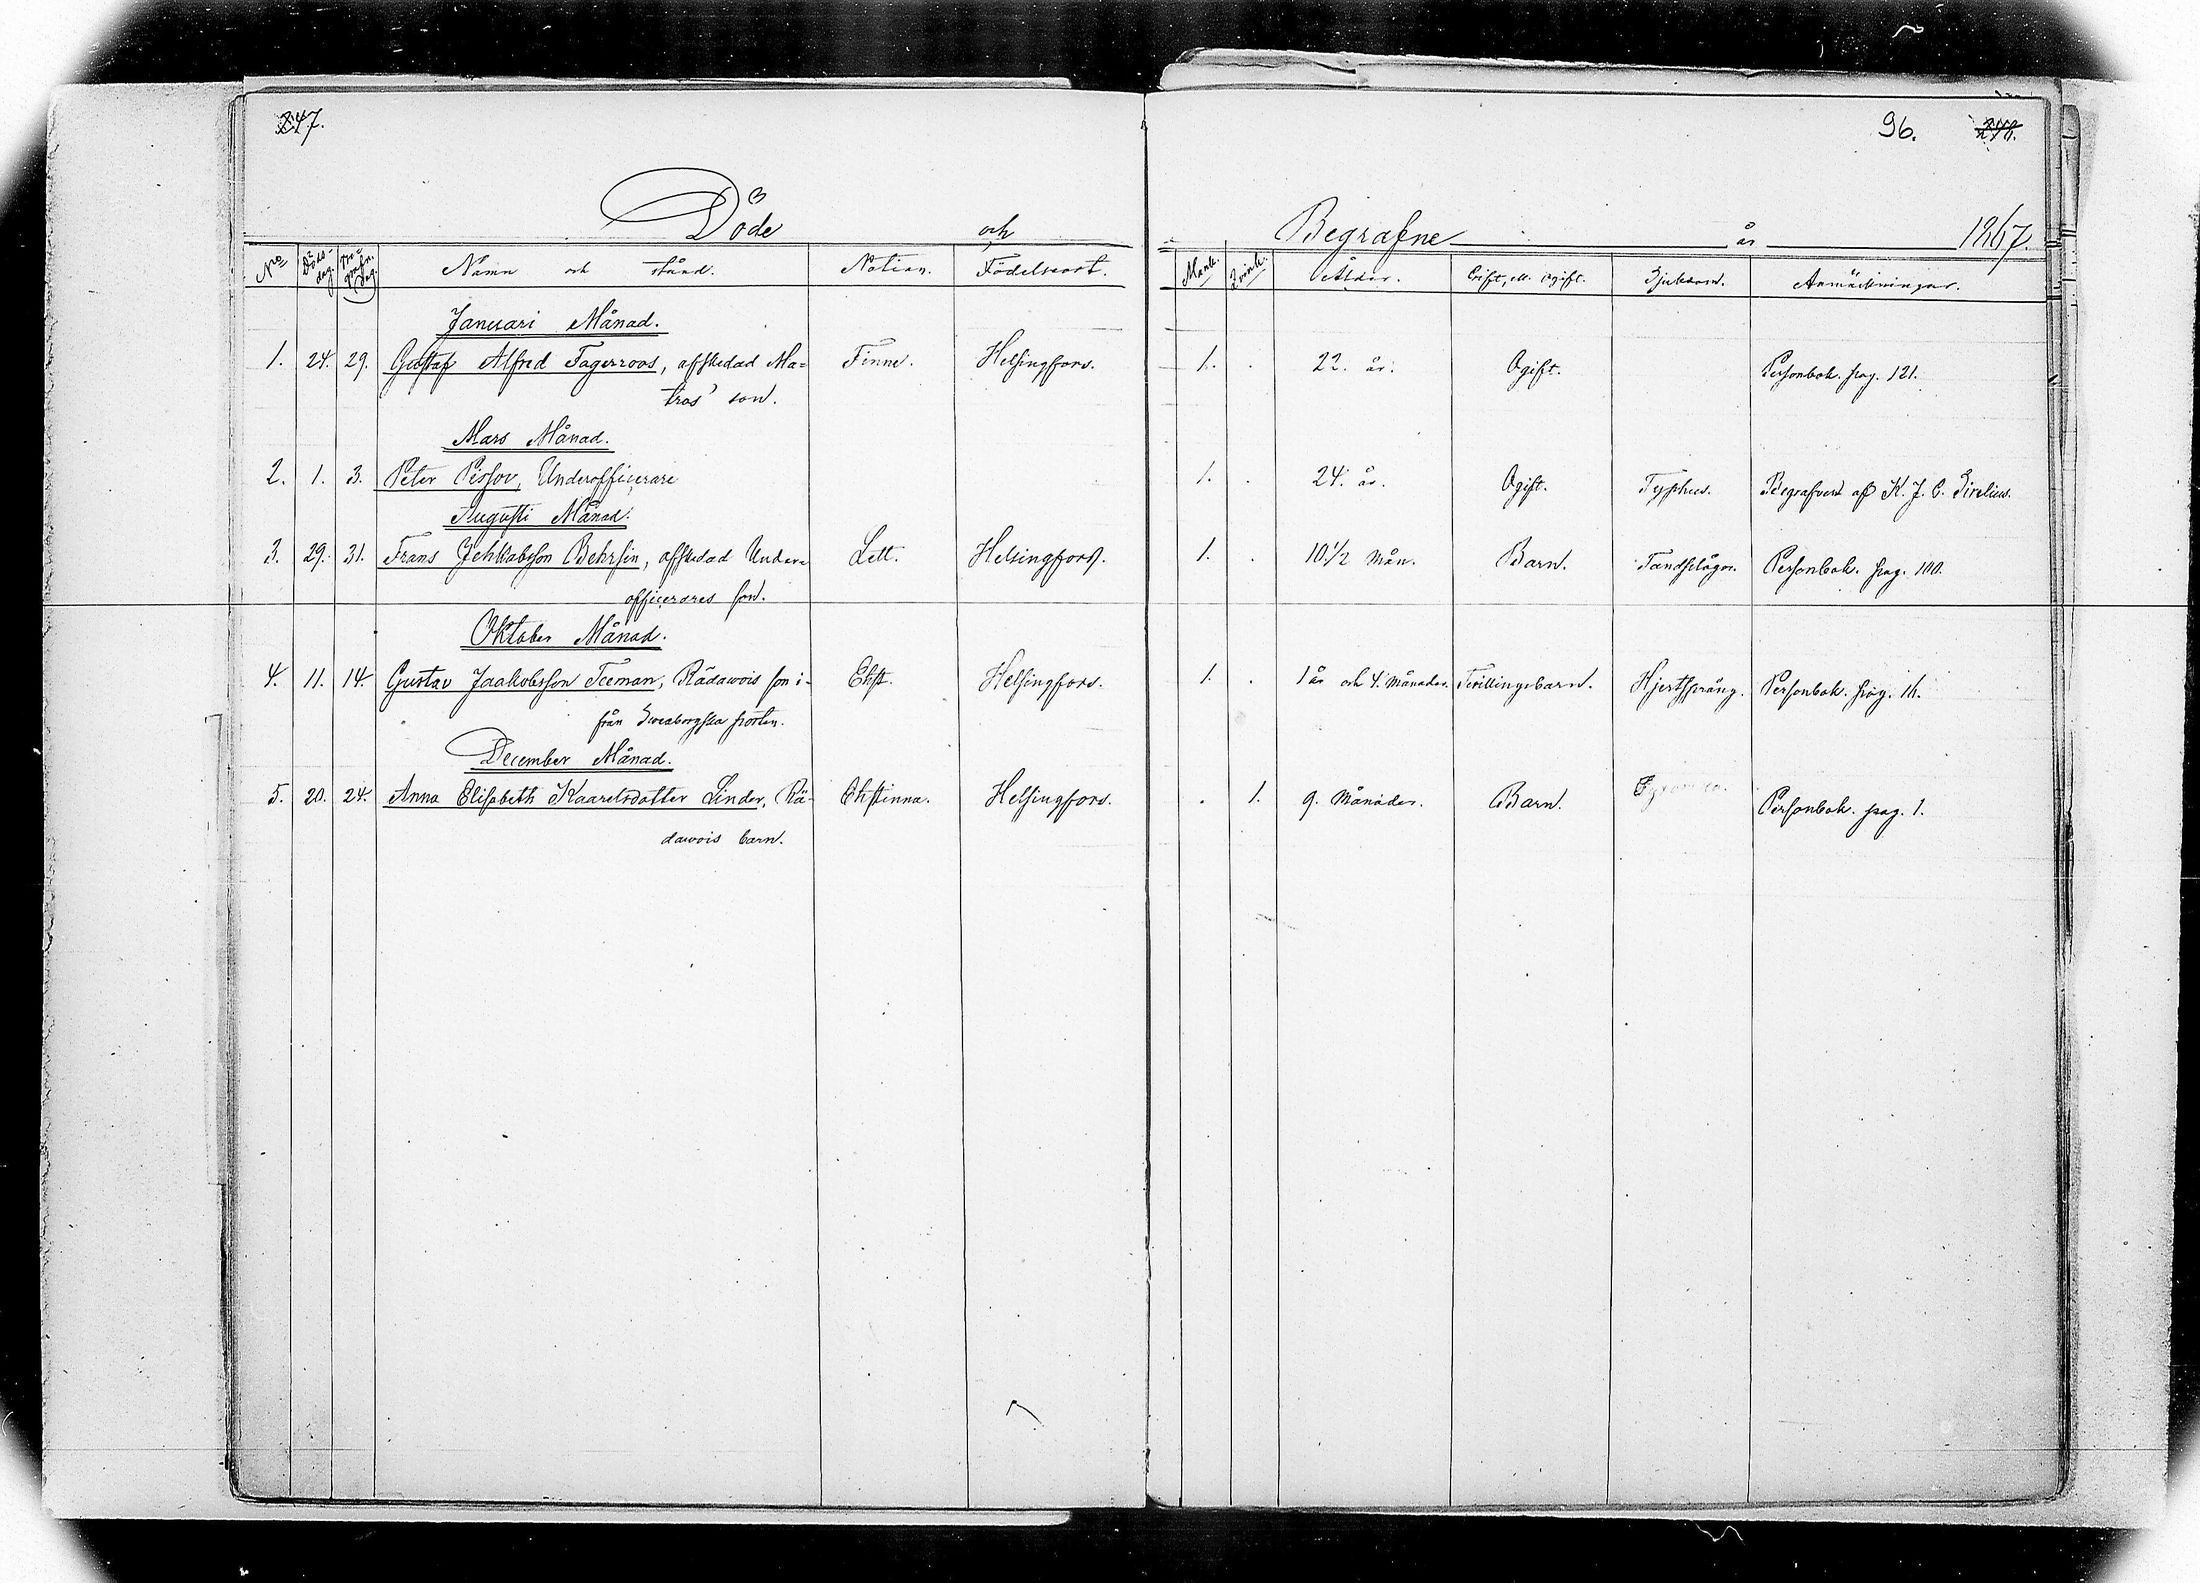 247.
96. 248.
Döde och Begrafne år 1867.
No Döds-dag. Be-grafn. dag. Namn och stånd. Nation. Födelseort. Mank. Qvink. Ålder. Gift, ell. ogift. Sjukdom. Anmärkningar.
Januari Månad.
1. 24. 29. Gustaf Alfred Fagerroos, afskedad Ma= Finne. Helsingfors. 1. . 22. år. Ogift. Personbok. pag. 121.
tros' son.
Mars Månad.
2. 1. 3. Peter Pessov, Underofficerare 1. . 24. år. Ogift. Typhus. Begrafven af K. J. G. Sirelius.
Augusti Månad.
3. 29. 31. Frans Jehkabsson Behrsin, afskedad Under= Lett. Helsingfors. 1. . 10 1/2 Mån. Barn. Tandslågor. Personbok. pag. 100.
officerares son.
Oktober Månad.
4. 11. 14. Gustav Jaakobsson Teeman, Rädawois son i- Ehst. Helsingfors. 1. . 1 år och 4. Månader. Tvillingsbarn. Hjertsprång. Personbok. pag. 16.
från Sweaborgska porten.
December Månad.
5. 20. 24. Anna Elisabeth Kaarelsdotter Linder, Rä- Ehstinna. Helsingfors. . 1. 9. Månader. Barn. Personbok. pag. 1.
dawois barn.